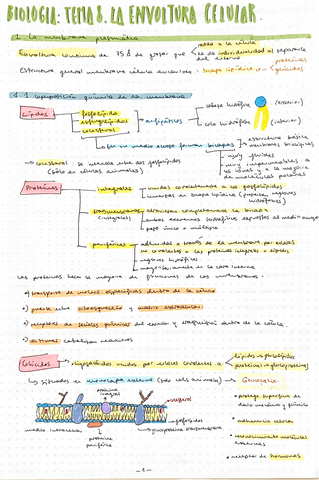 BIOLOGIA: TEMA 8. LA ENVOLTURA CELULAR.
1. La membrana plasmática
rodea a la célula
Envoltura continua de 75 Å de grosor que le da individualidad al separarla
del entorno
proteínas
Estructura general membrana célula eucariota: bicapa lipídica con glúcidos
1.1 Composición química de la membrana
Lípidos
fosfolípidos
esfingolípidos
colesterol
anfipáticos
cabeza hidrófila (exterior)
cola hidrófoba (interior)
en un medio acuoso forman bicapas
estructura básica
membranas biológicas
muy fluidas
muy impermeables a
los iones y a la mayoría
de moléculas polares
colesterol: se intercala entre dos fosfolípidos
(sólo en células animales)
Proteínas
integrales
unidas covalentemente a los fosfolípidos
inmersas en bicapa lipídica (presentan regiones
hidrófobas)
transmembrana
(integrales)
atraviesan completamente la bicapa
ambos extremos hidrófilos expuestos al medio acuoso
paso único o múltiple
periféricas
adheridas a través de la membrana por enlaces
no covalentes a las proteínas integrales o lípidos
regiones hidrófilas
mayoritariamente en la cara interna
Las proteínas hacen la mayoría de funciones de las membranas:
transporte de moléculas específicas dentro de la célula
puente entre citoesqueleto y matriz extracelular
receptores de señales químicas del exterior y transmisión dentro de la célula
enzimas catalizan reacciones
Glúcidos
oligosacáridos unidos por enlaces covalentes a
lípidos → glucolípidos
proteínas → glucoproteínas
situados en envoltura externa (sólo cels animales) → Glucocálix
protege superficie de
daño mecánico y químico
adherencia celular
reconocimiento moléculas
externas
receptor de hormonas
proteína
integral
colesterol
medio intracelular
proteína
periférica
fosfolípidos
glucoproteína transmembrana
-1-